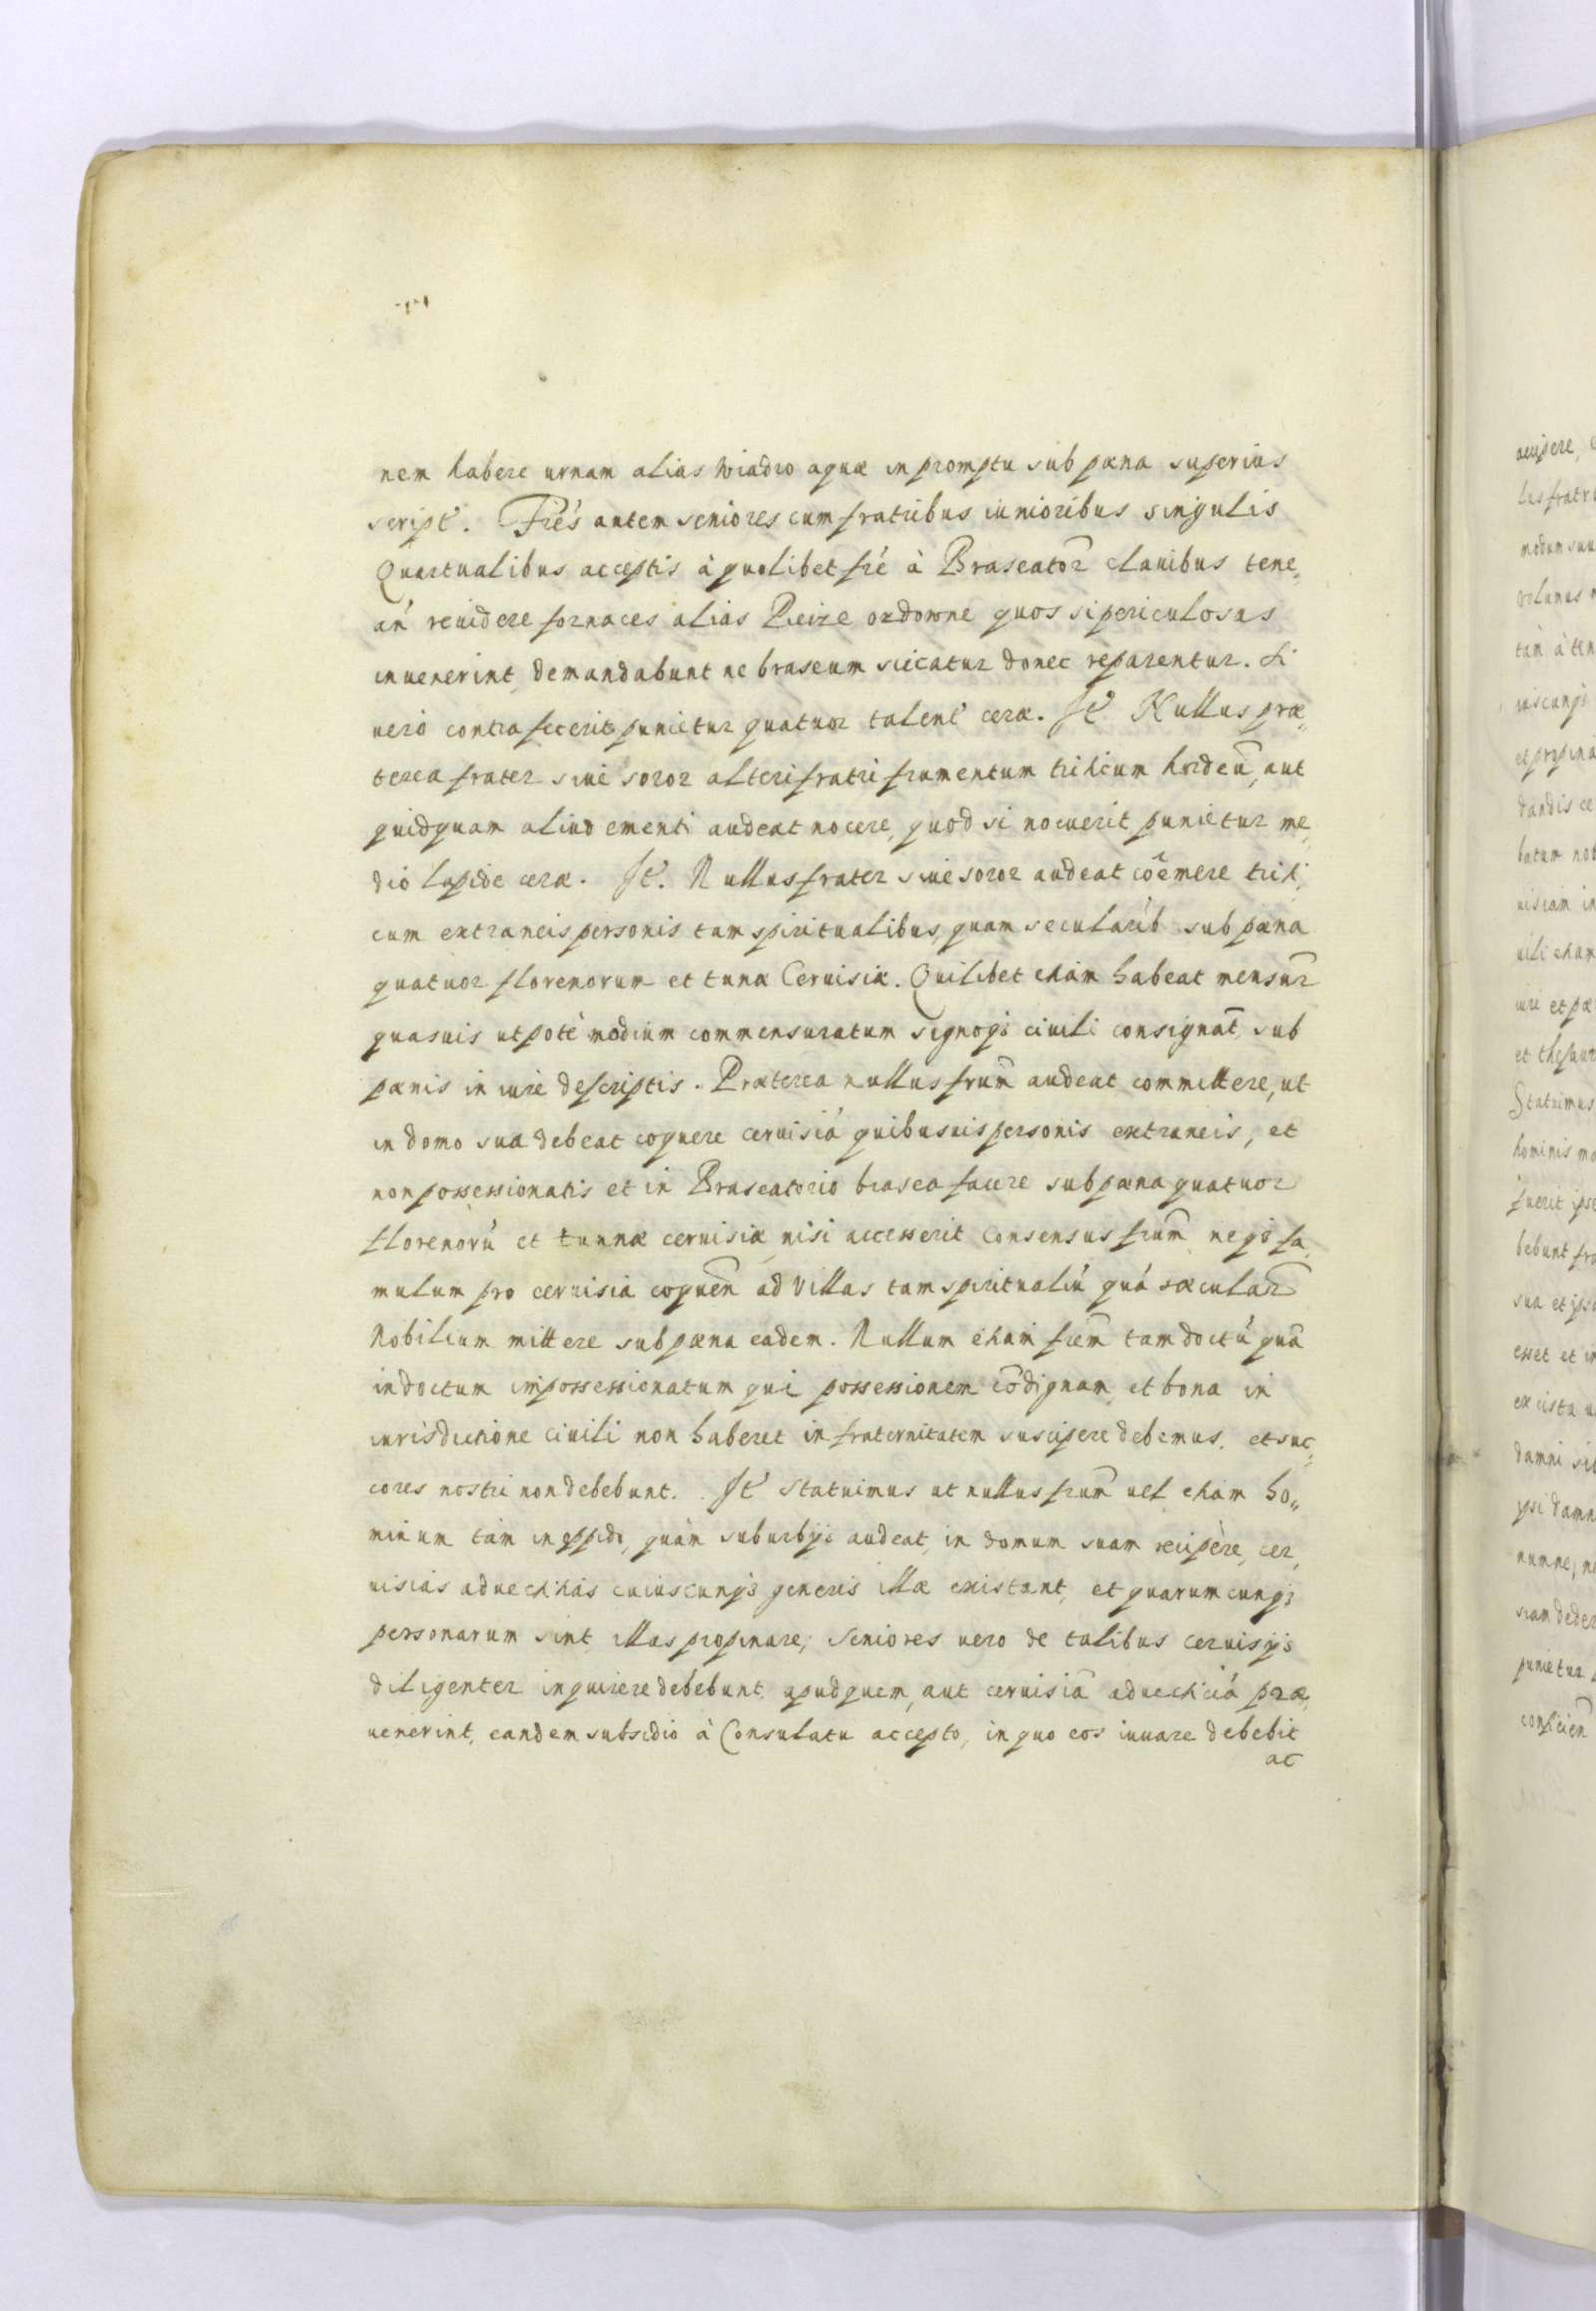 nem habere urnam alias wiadro aquæ in promptu sub pœna superius
script. Frés autem seniores cum fratribus iunioribus singulis
Quartualibus acceptis à quolibet fré à Braseator clauibus tene,
án reuidere fornaces alias Pieize ozdowne quos si periculosas
inuenerint, demandabunt ne braseum siccatur donec reparentur. Si
uero contra fecerit punietur quatuor talent ceræ. It Nullus præ„
terea frater siue soror alteri fratri frumentum triticum hordeu, aut
quidquam aliud ementi audeat nocere, quod si nocuerit punietur me,
dio lapide ceræ. It. Nullus frater siue soror audeat coemere triti,
cum extraneis personis tam spiritualibus, quam secularib sub pœna
quatuor florenorum et tunæ Ceruisiæ. Quilibet etiam habeat mensur
quasuis utpote modium commensuratum signoqȝ ciuili consignat, sub
pœnis in iure descriptis. Præterea nullus frum audeat committere, ut
in domo sua debeat coquere ceruisiá quibusuis personis extraneis, et
non possessionatis et in Braseatorio brasea facere sub pœna quatuor
florenorú et tunnæ ceruisiæ nisi accesserit Consensus frum neqȝ fa,
mulum pro ceruisia coquen ad Villas tam spiritualiú quá sæcular
Nobilium mittere sub pœna eadem. Nullum etiam frem tam doctú qua
indoctum impossessionatum qui possessionem codignam, et bona in
iurisdictione ciuili non haberet in fraternitatem suscipere debemus, et suc,
cores nostri non debebunt. It statuimus ut nullus frum uel etiam ho„
minum tàm in oppido, quàm suburbijs audeat, in domum suam recipère, cer,
uisias aduectitias cuiuscunqȝ generis illæ existant, et quarumcunqȝ
personarum sint, illas propinare, Seniores uero de talibus ceruisijs
diligenter inquirere debebunt, apud quem, aut ceruisia aduecticiá præ,
uenerint, eandem subsidio à Consulatu accepto, in quo eos iuuare debebit
ac